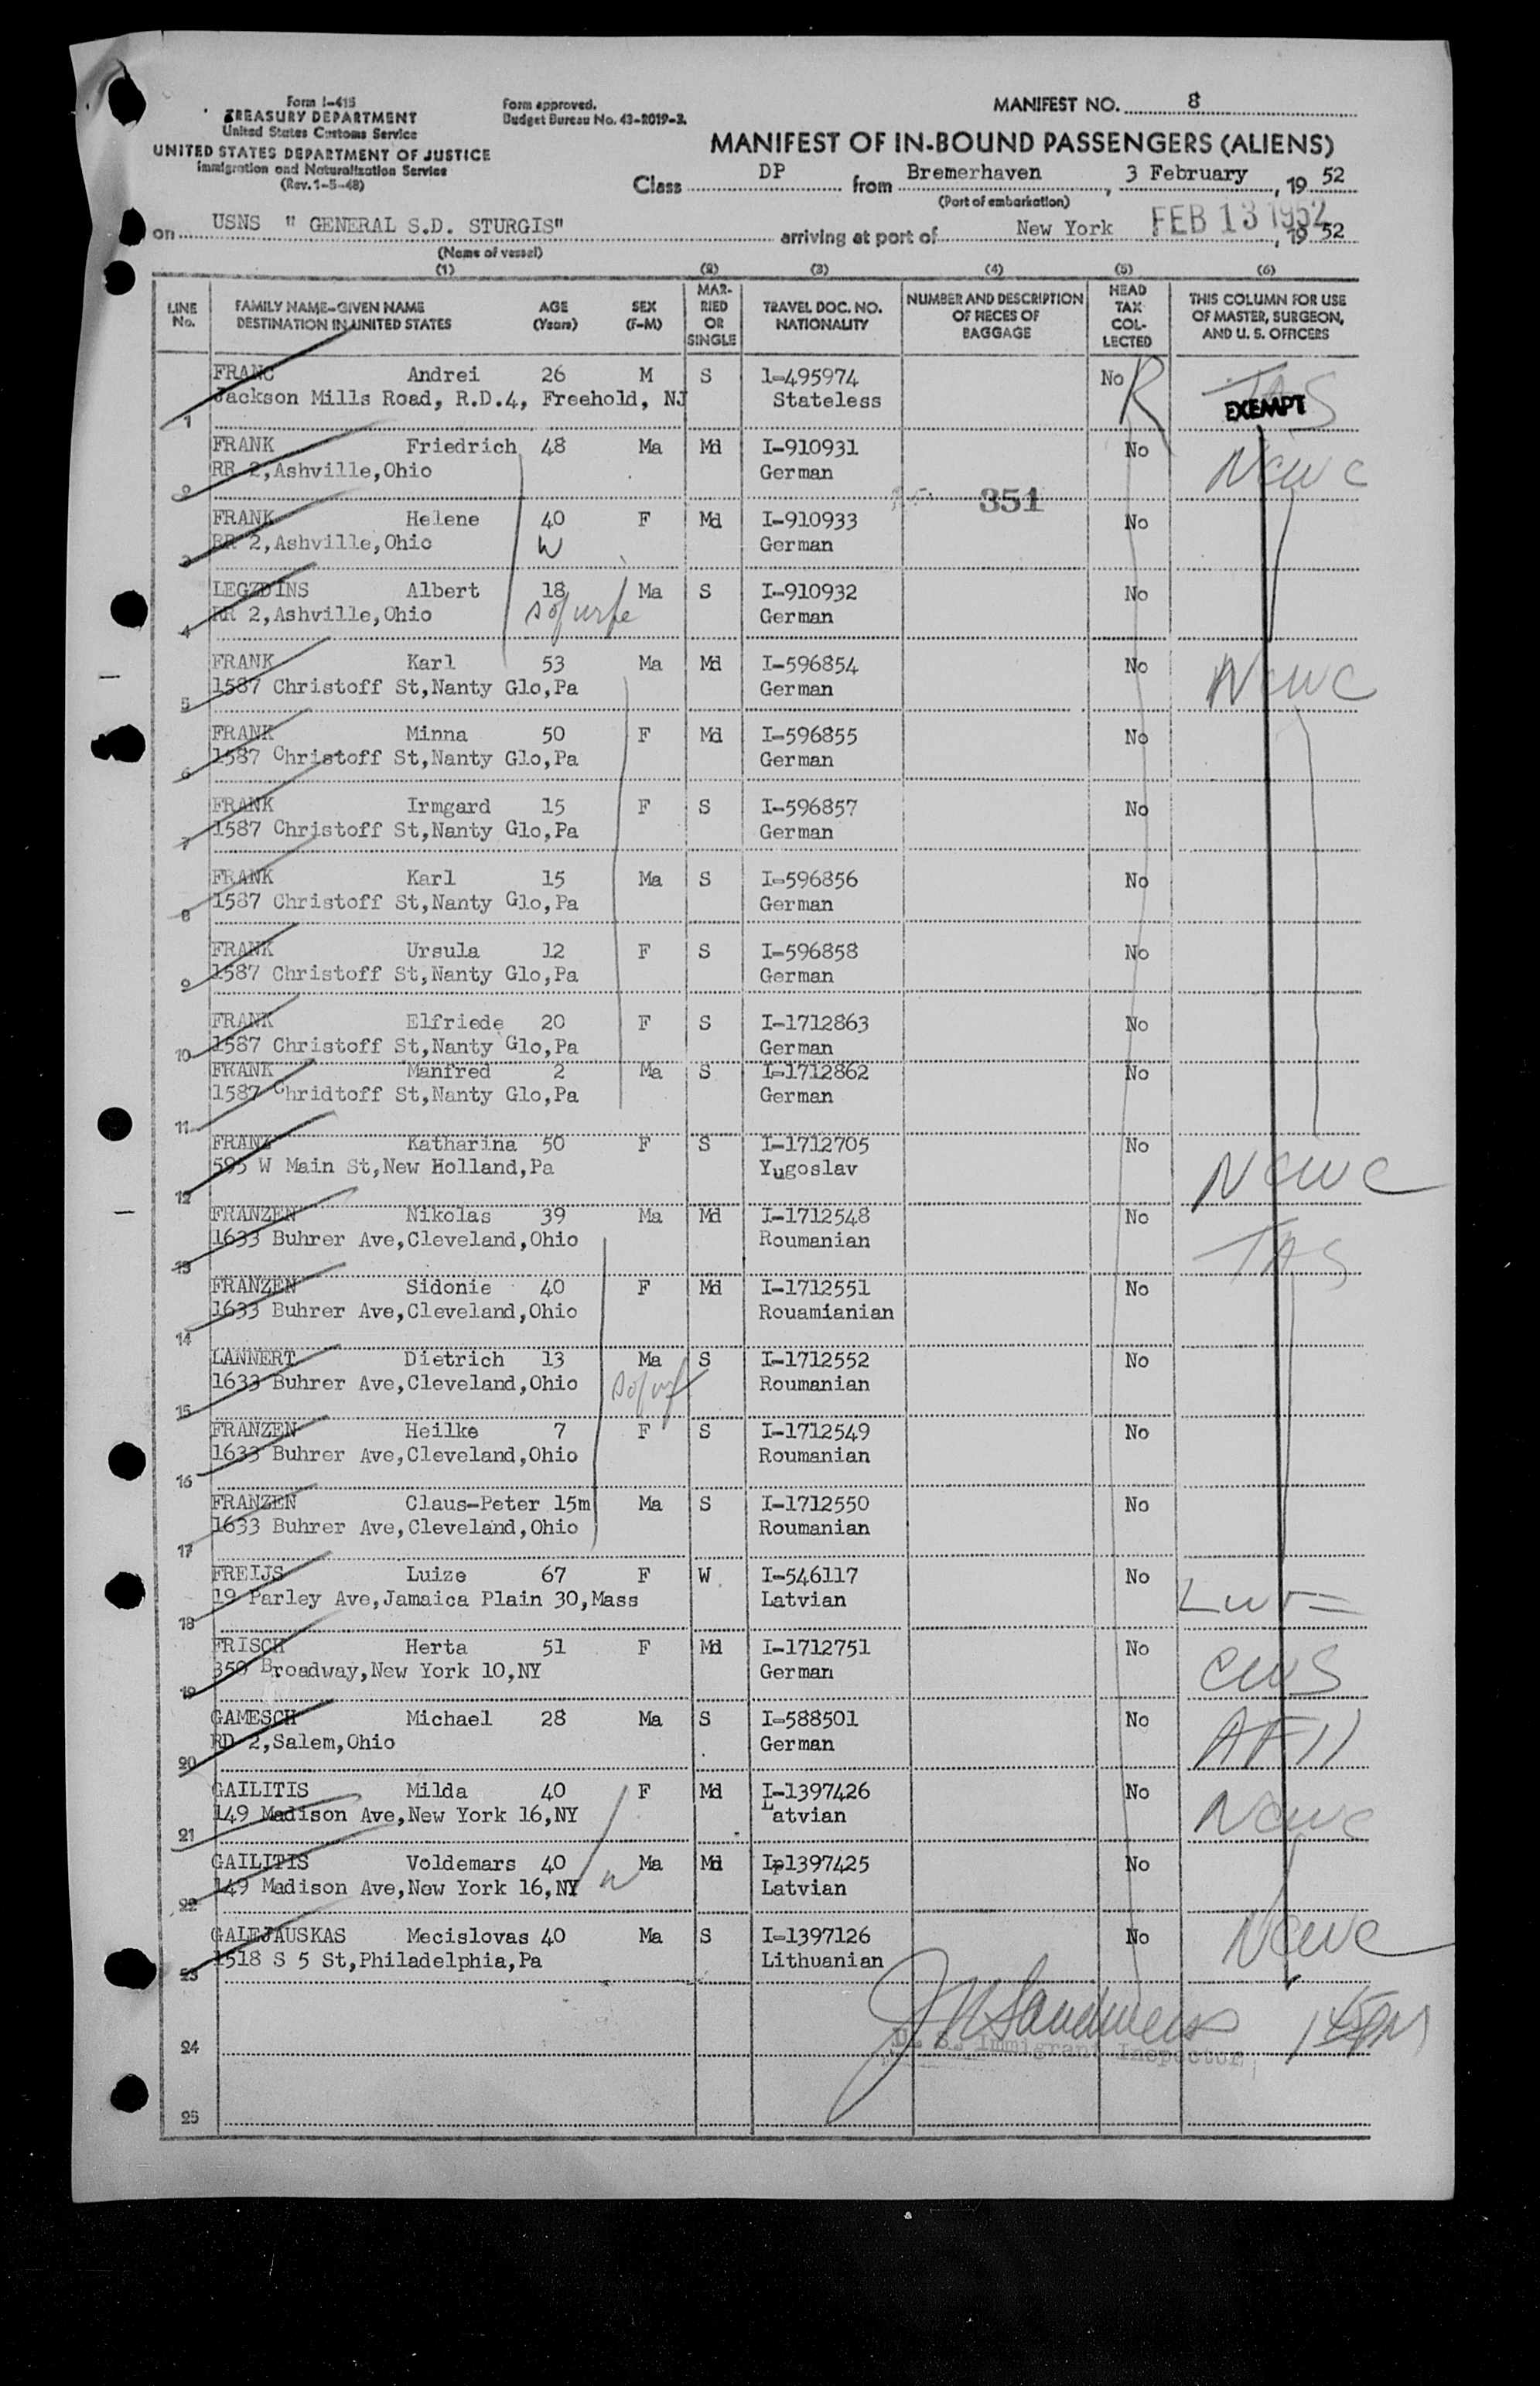 Form I-415
TREASURY DEPARTMENT
United States Customs Service
UNITED STATES DEPARTMENT OF JUSTICE
Immigration and Naturalization Service
(Rev. 1-5-48)
Form approved.
Budget Bureau No. 43-R019-3.
MANIFEST NO. 8
MANIFEST OF IN-BOUND PASSENGERS (ALIENS)
Class DP from Bremerhaven, 3 February, 19 52
(Port of embarkation)
on USNS " GENERAL S.D. STURGIS" arriving at port of New York FEB 13 1952, 19 52
(Name of vessel)
(1) (2) (3) (4) (5) (6)
LINE No. FAMILY NAME-GIVEN NAME DESTINATION IN UNITED STATES AGE (Years) SEX (F-M) MARRIED OR SINGLE TRAVEL DOC. NO. NATIONALITY NUMBER AND DESCRIPTION OF PIECES OF BAGGAGE HEAD TAX COLLECTED THIS COLUMN FOR USE OF MASTER, SURGEON, AND U. S. OFFICERS
FRANC Andrei 26 M S 1-495974 No R TAS
1 Jackson Mills Road, R.D.4, Freehold, NJ Stateless EXEMPT
FRANK Friedrich 48 Ma Md I-910931 No NCWC
2 RR 2,Ashville,Ohio German
351
FRANK Helene 40 F Md I-910933 No
3 RR 2,Ashville,Ohio W German
LEGZDINS Albert 18 Ma S I-910932 No
4 RR 2,Ashville,Ohio s of wife German
FRANK Karl 53 Ma Md I-596854 No NCWC
5 1587 Christoff St,Nanty Glo,Pa German
FRANK Minna 50 F Md I-596855 No
6 1587 Christoff St,Nanty Glo,Pa German
FRANK Irmgard 15 F S I-596857 No
7 1587 Christoff St,Nanty Glo,Pa German
FRANK Karl 15 Ma S I-596856 No
8 1587 Christoff St,Nanty Glo,Pa German
FRANK Ursula 12 F S I-596858 No
9 1587 Christoff St,Nanty Glo,Pa German
FRANK Elfriede 20 F S I-1712863 No
10 1587 Christoff St,Nanty Glo,Pa German
FRANK Manfred 2 Ma S I-1712862 No
11 1587 Chridtoff St,Nanty Glo,Pa German
FRANZ Katharina 50 F S I-1712705 No NCWC
12 595 W Main St,New Holland,Pa Yugoslav
FRANZEN Nikolas 39 Ma Md I-1712548 No TAS
13 1633 Buhrer Ave,Cleveland,Ohio Roumanian
FRANZEN Sidonie 40 F Md I-1712551 No
14 1633 Buhrer Ave,Cleveland,Ohio Rouamianian
LANNERT Dietrich 13 Ma S I-1712552 No
15 1633 Buhrer Ave,Cleveland,Ohio Roumanian
FRANZEN Heilke 7 F S I-1712549 No
16 1633 Buhrer Ave,Cleveland,Ohio Roumanian
FRANZEN Claus-Peter 15m Ma S I-1712550 No
17 1633 Buhrer Ave,Cleveland,Ohio Roumanian
FREIJS Luize 67 F W I-546117 No LWF
18 19 Parley Ave,Jamaica Plain 30,Mass Latvian
FRISCH Herta 51 F Md I-1712751 No CWS
19 350 Broadway,New York 10,NY German
GAMESCH Michael 28 Ma S I-588501 No
20 RD 2,Salem,Ohio German
GAILITIS Milda 40 F Md I-1397426 No NCWC
21 149 Madison Ave,New York 16,NY Latvian
GAILITIS Voldemars 40 Ma Md Ip1397425 No
22 149 Madison Ave,New York 16,NY Latvian
GALEJAUSKAS Mecislovas 40 Ma S I-1397126 No NCWC
23 1518 S 5 St,Philadelphia,Pa Lithuanian
24 U. S. Immigrant Inspector
25